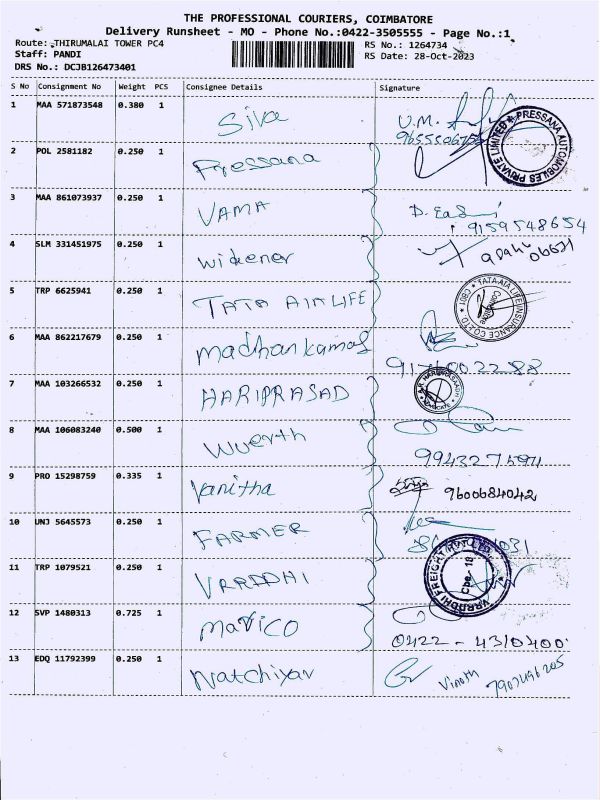 THE PROFESSIONAL COURIERS, COIMBATORE
Delivery Runsheet - MO - Phone No.:0422-3505555 - Page No.:1
Route: THIRUMALAI TOWER PC4
RS No.: 1264734
Staff: PANDI
RS Date: 28-Oct-2023
DRS No.: DCJB126473401
S No Consignment No Weight PCS Consignee Details Signature
1 MAA 571873548 0.380 1 Siva U.M.
PRESSANA AUTOMOBILES PRIVATE LIMITED
2 POL 2581182 0.250 1 Pressana
3 MAA 861073937 0.250 1 VAMA D.
9159548654
4 SLM 331451975 0.250 1 Widener
5 TRP 6625941 0.250 1 TATA AIA LIFE TATA-AIA LIFE INSURANCE CO LTD.
6 MAA 862217679 0.250 1 madhankamal
7 MAA 103266532 0.250 1 HARIPRASAD ADVOCATE
8 MAA 106083240 0.500 1 Wuerth
9 PRO 15298759 0.335 1 Vanitha 9600684042
10 UNJ 5645573 0.250 1 FARMER
11 TRP 1079521 0.250 1 VRADDHI
12 SVP 1480313 0.725 1 MaVICO 0422 - 4310400
13 EDQ 11792399 0.250 1 Natchiyar Vinoth